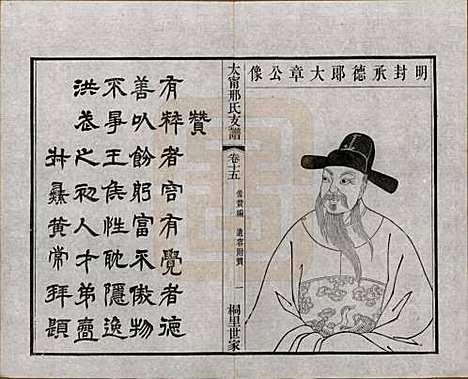 明封承德郎大章公像
太甯邢氏支譜
卷十五
像贊編 遺容附贊
一
桐里世家
贊
有粹者容有覺者德
善以飭躬富不傲物
不事王侯性耽隱逸
洪荒之初人才弟
黃常拜題